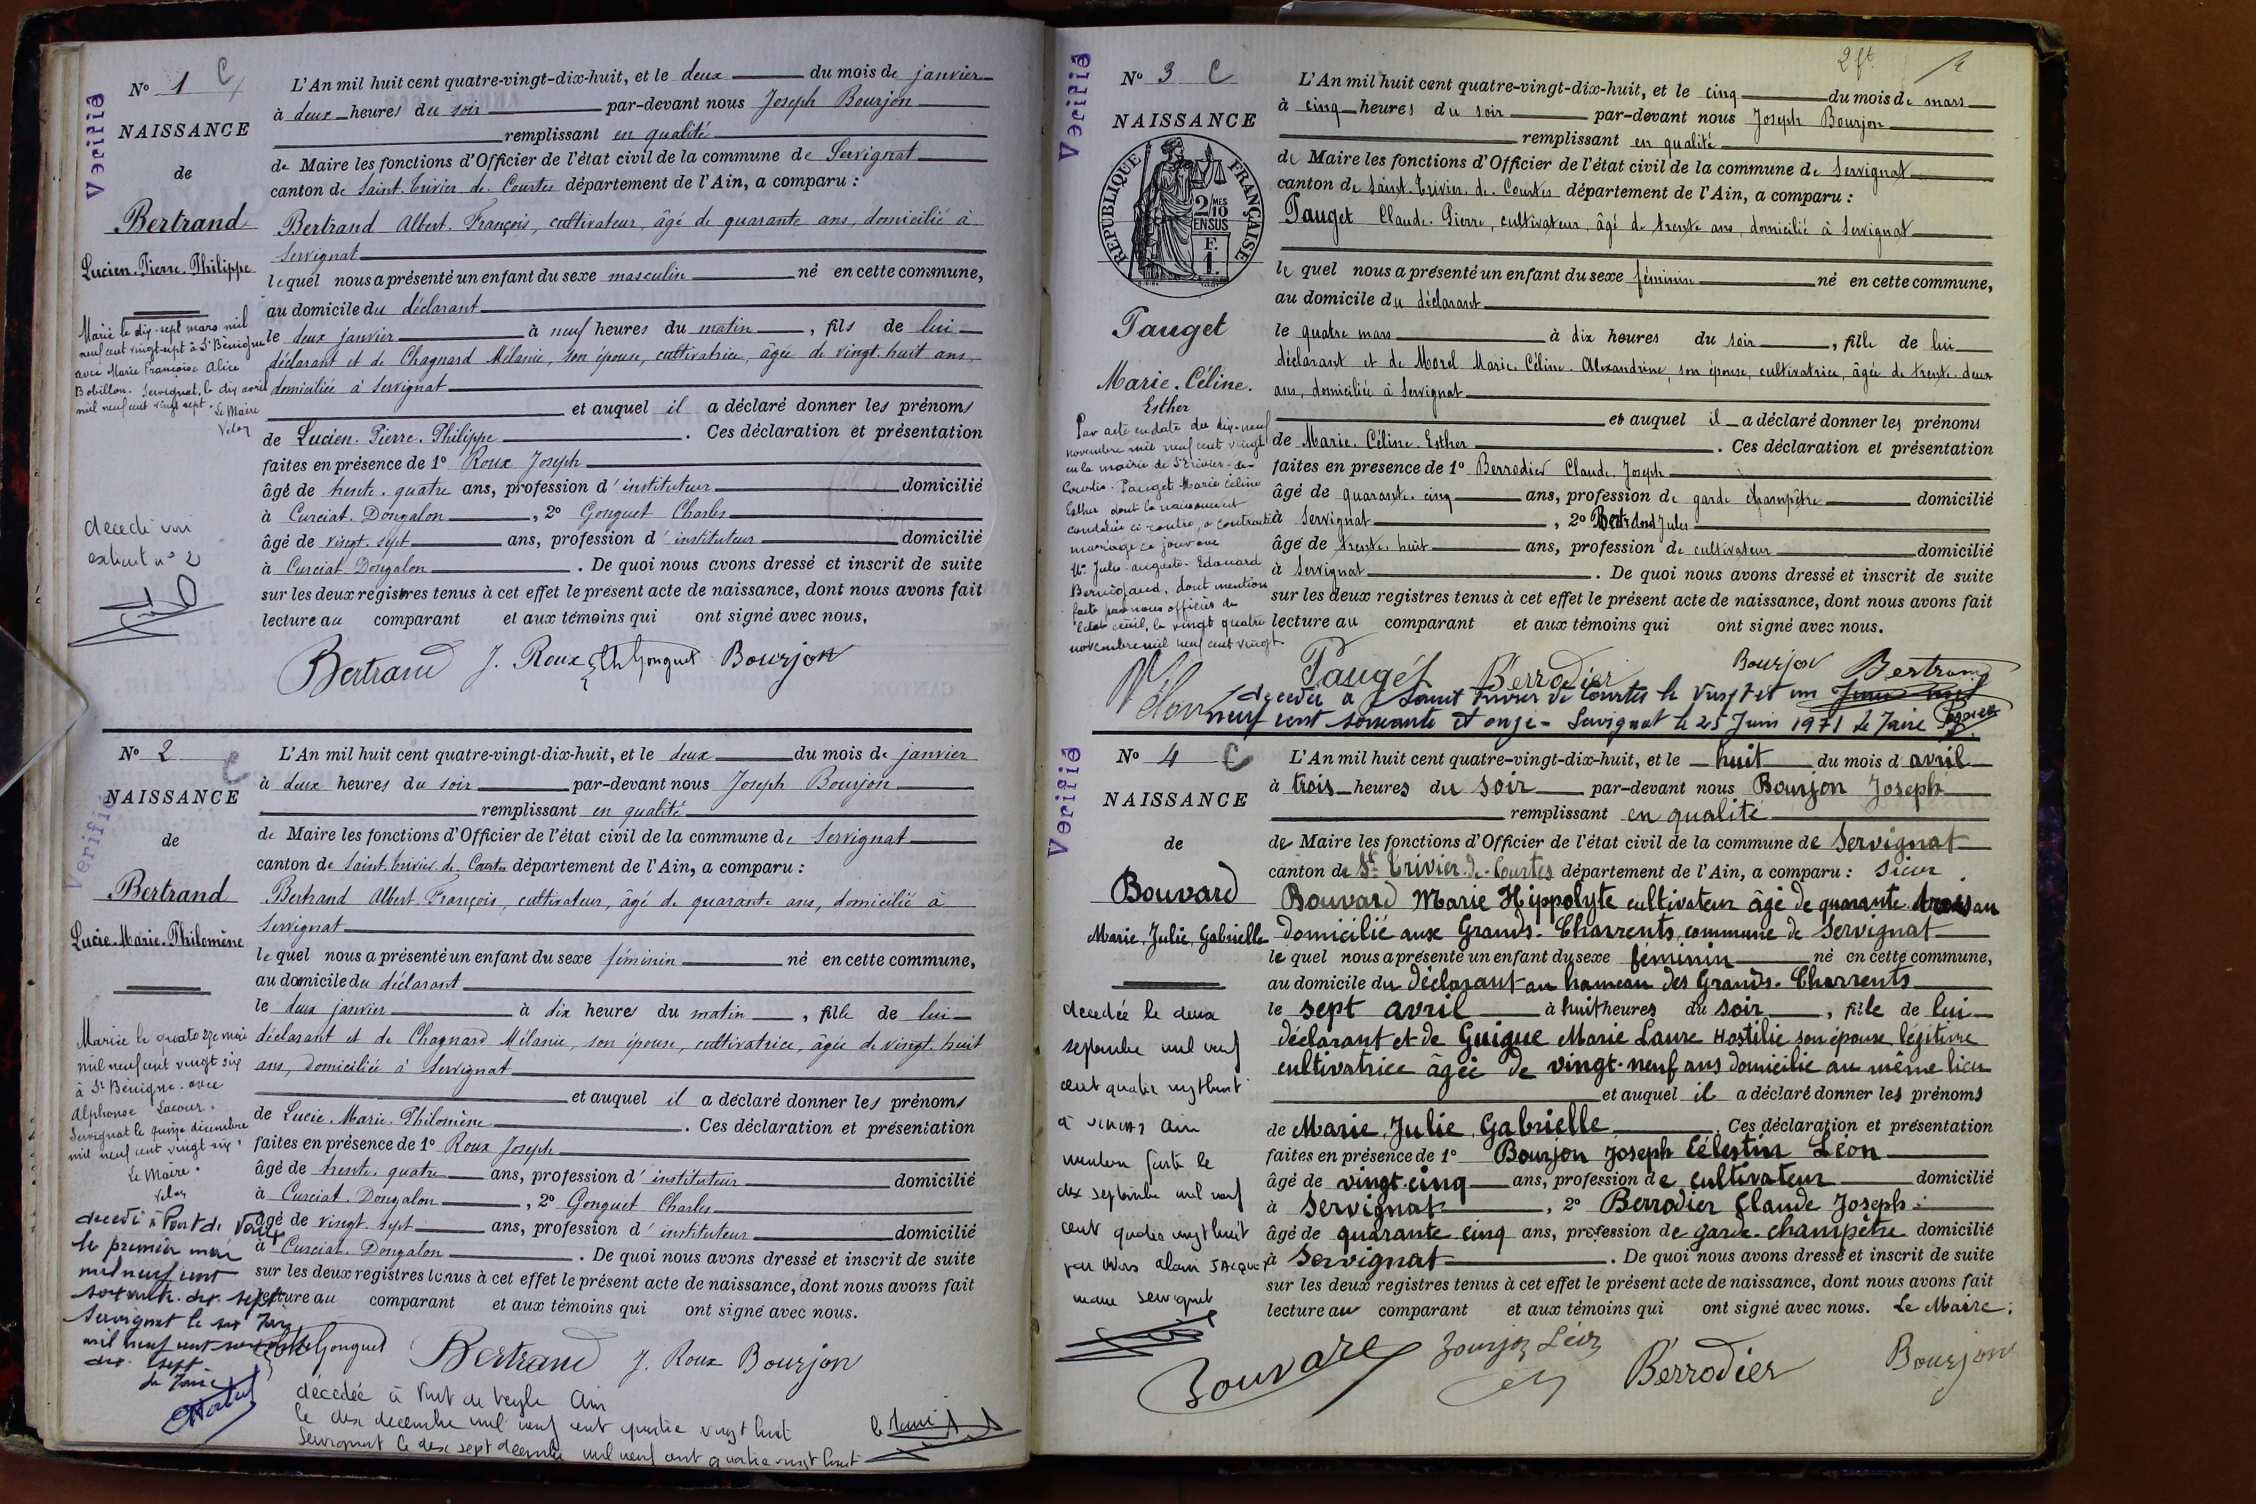 Nº 1 C
Vérifié
NAISSANCE
de
Bertrand
Lucien. Pierre. Philippe
Marié le dix-sept mars mil
neuf cent vingt-sept à St Bénigne
avec Marie Françoise Alice
Bobillon. Servignat, le dix avril
mil neuf cent vingt sept.
Le Maire
Velon
décédé voir
extrait nº 2
L'An mil huit cent quatre-vingt-dix-huit, et le deux du mois de janvier
à deux heures du soir par-devant nous Joseph Bourjon
remplissant en qualité
de Maire les fonctions d'Officier de l'état civil de la commune de Servignat
canton de Saint-Trivier-de-Courtes département de l'Ain, a comparu :
Bertrand Albert. François, cultivateur, âgé de quarante ans, domicilié à
Servignat
lequel nous a présenté un enfant du sexe masculin né en cette commune,
au domicile du déclarant
le deux janvier à neuf heures du matin, fils de lui
déclarant et de Chagnard Mélanie, son épouse, cultivatrice, âgée de vingt-huit ans,
domiciliée à Servignat
et auquel il a déclaré donner les prénoms
de Lucien. Pierre. Philippe. Ces déclaration et présentation
faites en présence de 1º Roux Joseph
âgé de trente-quatre ans, profession d'instituteur domicilié
à Curciat. Dongalon, 2º Gonguet Charles
âgé de vingt-sept ans, profession d'instituteur domicilié
à Curciat Dongalon. De quoi nous avons dressé et inscrit de suite
sur les deux registres tenus à cet effet le présent acte de naissance, dont nous avons fait
lecture au comparant et aux témoins qui ont signé avec nous.
Bertrand J. Roux Ch Gonguet Bourjon
Nº 2 C
Vérifié
NAISSANCE
de
Bertrand
Lucie. Marie. Philomène
Mariée le quatorze mai
mil neuf cent vingt six
à St Bénigne avec
Alphonse Lacour.
Servignat le quinze décembre
mil neuf cent vingt six.
Le Maire.
Velon
décédé à Pont de Vaux
le premier mai
mil neuf cent
soixante-dix-sept
Servignat le
mil neuf cent soixante
dix-sept
Le Maire
L'An mil huit cent quatre-vingt-dix-huit, et le deux du mois de janvier
à deux heures du soir par-devant nous Joseph Bourjon
remplissant en qualité
de Maire les fonctions d'Officier de l'état civil de la commune de Servignat
canton de Saint-Trivier-de-Courtes département de l'Ain, a comparu :
Bertrand Albert François, cultivateur, âgé de quarante ans, domicilié à
Servignat
lequel nous a présenté un enfant du sexe féminin né en cette commune,
au domicile du déclarant
le deux janvier à dix heures du matin, fille de lui
déclarant et de Chagnard Mélanie, son épouse, cultivatrice, âgée de vingt-huit
ans, domiciliée à Servignat
et auquel il a déclaré donner les prénoms
de Lucie. Marie. Philomène. Ces déclaration et présentation
faites en présence de 1º Roux Joseph
âgé de trente-quatre ans, profession d'instituteur domicilié
à Curciat. Dongalon, 2º Gonguet Charles
âgé de vingt-sept ans, profession d'instituteur domicilié
à Curciat. Dongalon. De quoi nous avons dressé et inscrit de suite
sur les deux registres tenus à cet effet le présent acte de naissance, dont nous avons fait
lecture au comparant et aux témoins qui ont signé avec nous.
Ch Gonguet Bertrand J. Roux Bourjon
décédée à Pont de Veyle Ain
le dix décembre mil neuf cent quatre vingt huit
Servignat le dix sept décembre mil neuf cent quatre-vingt huit
le Maire
2 ft
Nº 3 C
Vérifié
NAISSANCE
RÉPUBLIQUE FRANÇAISE
2/10 MES
EN SUS
F.
1.
Pauget
Marie. Céline.
Esther
Par acte en date du dix-neuf
novembre mil neuf cent vingt
en la mairie de St Trivier-de-
Courtes. Pauget Marie Céline
Esther dont la naissance est
constatée ci-contre, a contracté
mariage ce jour avec
Mr Jules-Auguste-Edouard
dont mention
faite par nous officier de
l'état civil, le vingt quatre
novembre mil neuf cent vingt
Velon
L'An mil huit cent quatre-vingt-dix-huit, et le cinq du mois de mars
à cinq heures du soir par-devant nous Joseph Bourjon
remplissant en qualité
de Maire les fonctions d'Officier de l'état civil de la commune de Servignat
canton de Saint-Trivier-de-Courtes département de l'Ain, a comparu :
Pauget Claude. Pierre, cultivateur, âgé de trente ans, domicilié à Servignat
lequel nous a présenté un enfant du sexe féminin né en cette commune,
au domicile du déclarant
le quatre mars à dix heures du soir, fille de lui
déclarant et de Morel Marie. Céline. Alexandrine, son épouse, cultivatrice, âgée de trente-deux
ans, domiciliée à Servignat
et auquel il a déclaré donner les prénoms
de Marie. Céline. Esther. Ces déclaration et présentation
faites en présence de 1º Berrodier Claude. Joseph
âgé de quarante-cinq ans, profession de garde champêtre domicilié
à Servignat, 2º Bertrand Jules
âgé de trente-huit ans, profession de cultivateur domicilié
à Servignat. De quoi nous avons dressé et inscrit de suite
sur les deux registres tenus à cet effet le présent acte de naissance, dont nous avons fait
lecture au comparant et aux témoins qui ont signé avec nous.
Pauget Berrodier Bourjon Bertrand
décédée à Saint Trivier de Courtes le vingt et un Juin mil
neuf cent soixante et onze - Servignat le 25 Juin 1971 Le Maire
Nº 4 C
Vérifié
NAISSANCE
de
Bouvard
Marie, Julie, Gabrielle
décédée le deux
septembre mil neuf
cent quatre vingt huit
à Ain
mention faite le
dix septembre mil neuf
cent quatre vingt huit
par Alain Jacques
maire Servignat
L'An mil huit cent quatre-vingt-dix-huit, et le huit du mois d avril
à trois heures du soir par-devant nous Bourjon Joseph
remplissant en qualité
de Maire les fonctions d'Officier de l'état civil de la commune de Servignat
canton de St Trivier-de-Courtes département de l'Ain, a comparu : Sieur
Bouvard Marie Hippolyte cultivateur âgé de quarante trois an
domicilié aux Grands-Charrents, commune de Servignat
lequel nous a présenté un enfant du sexe féminin né en cette commune,
au domicile du déclarant au hameau des Grands-Charrents
le sept avril à huit heures du soir, fille de lui
déclarant et de Guigue Marie Laure Hostilie son épouse légitime
cultivatrice âgée de vingt-neuf ans domicilie au même lieu
et auquel il a déclaré donner les prénoms
de Marie, Julie, Gabrielle. Ces déclaration et présentation
faites en présence de 1º Bourjon Joseph Célestin Léon
âgé de vingt-cinq ans, profession de cultivateur domicilié
à Servignat, 2º Berrodier Claude Joseph
âgé de quarante cinq ans, profession de garde-champêtre domicilié
à Servignat. De quoi nous avons dressé et inscrit de suite
sur les deux registres tenus à cet effet le présent acte de naissance, dont nous avons fait
lecture au comparant et aux témoins qui ont signé avec nous. Le Maire;
Bouvard Bourjon Léon Berrodier Bourjon